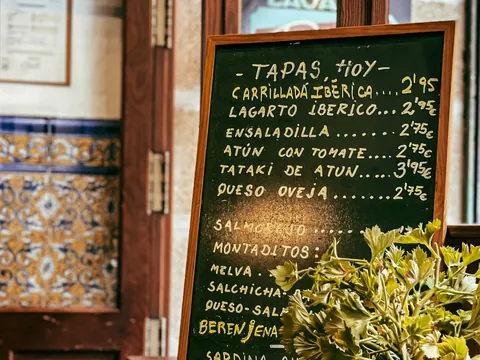 - TAPAS, HOY -
CARRILLADA IBÉRICA.... 2'95
LAGARTO IBERICO.... 2'95€
ENSALADILLA ....... 2'75€
ATÚN CON TOMATE.... 2'75€
TATAKI DE ATUN.... 3'95€
QUESO OVEJA ...... 2'75€
SALMOREJO ......
MONTADITOS:
MELVA .
SALCHICHA-
QUESO-SALA
BERENJENA
SARDINA